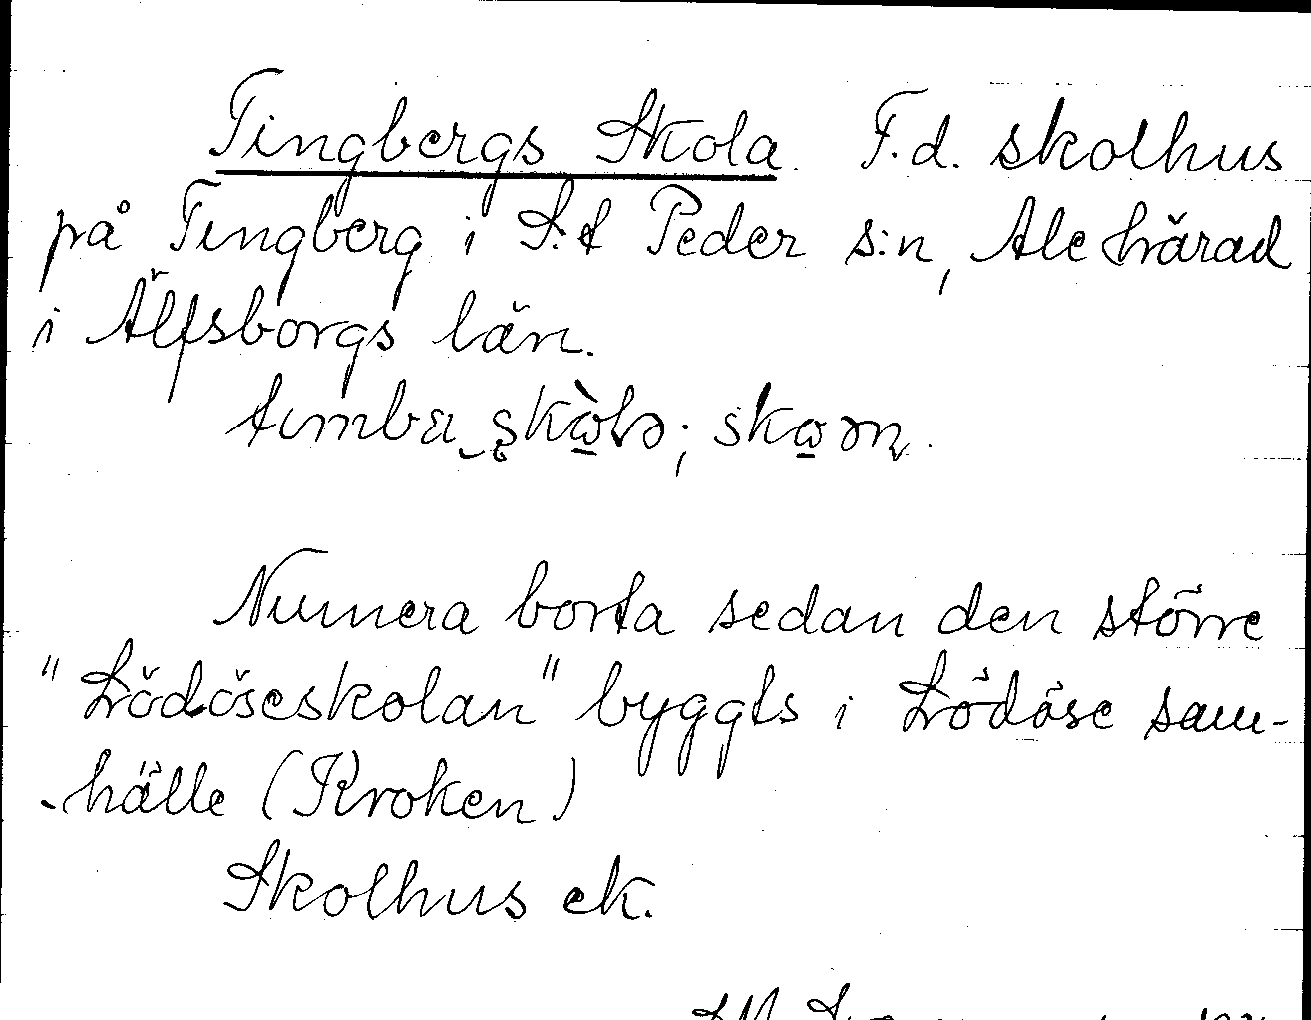 Tingbergs Skola. F.d. skolhus
på Tingberg i S:t Peder s:n, Ale härad
i Älfsborgs län.
Numera borta sedan den större
"Lödöseskolan" byggts i Lödöse sam-
-hälle (Kroken)
Skolhus ek.